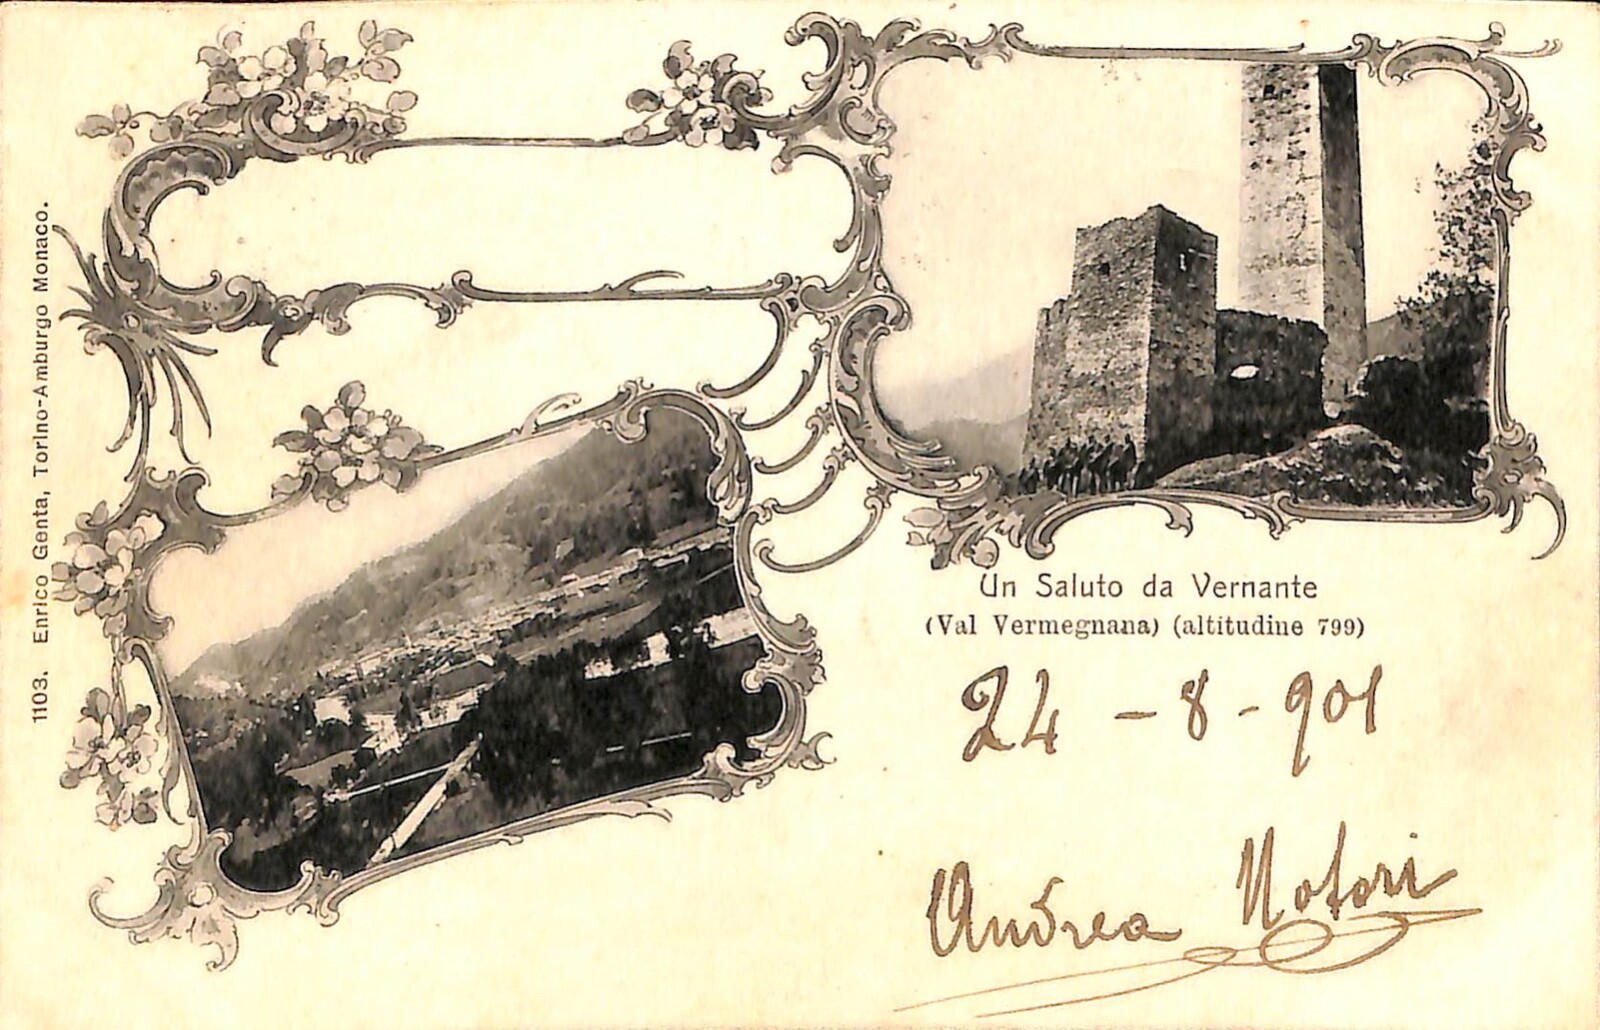 1103. Enrico Genta, Torino-Amburgo Monaco.
Un Saluto da Vernante
(Val Vermegnana) (altitudine 799)
24 - 8 - 901
Andrea Notari